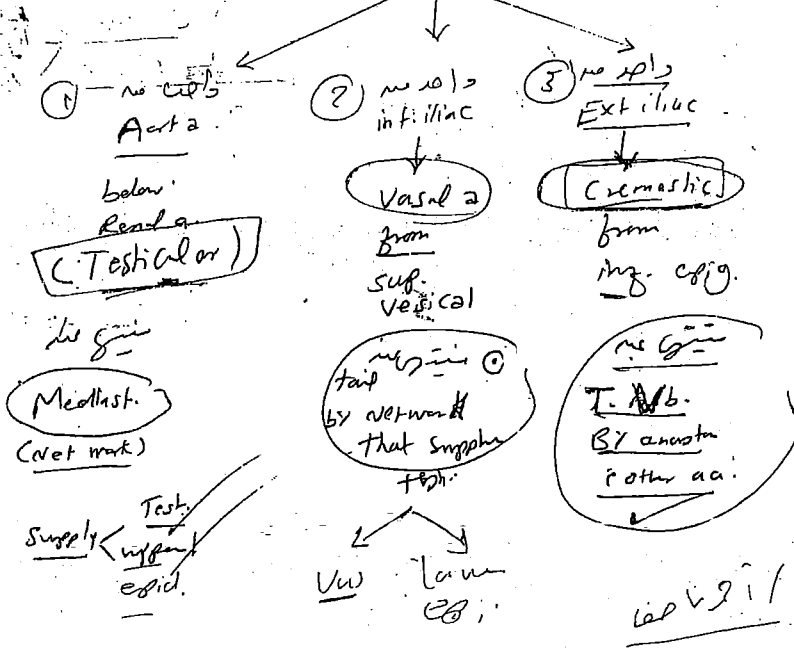 ①
واحد من
Aorta
below
Renal a.
(Testicular)
ينتهي عند
Mediast.
(Net work)
Supply
Test.
upper
epid.
②
واحد من
int. iliac
Vasal a
from
sup.
vesical
ينتهي عند
tail
by network
that supplu
test.
Vas
Lower
epi.
③
واحد من
Ext iliac
Cremastic
from
inf. epig.
ينتهي عند
T.
By anasto
other aa.